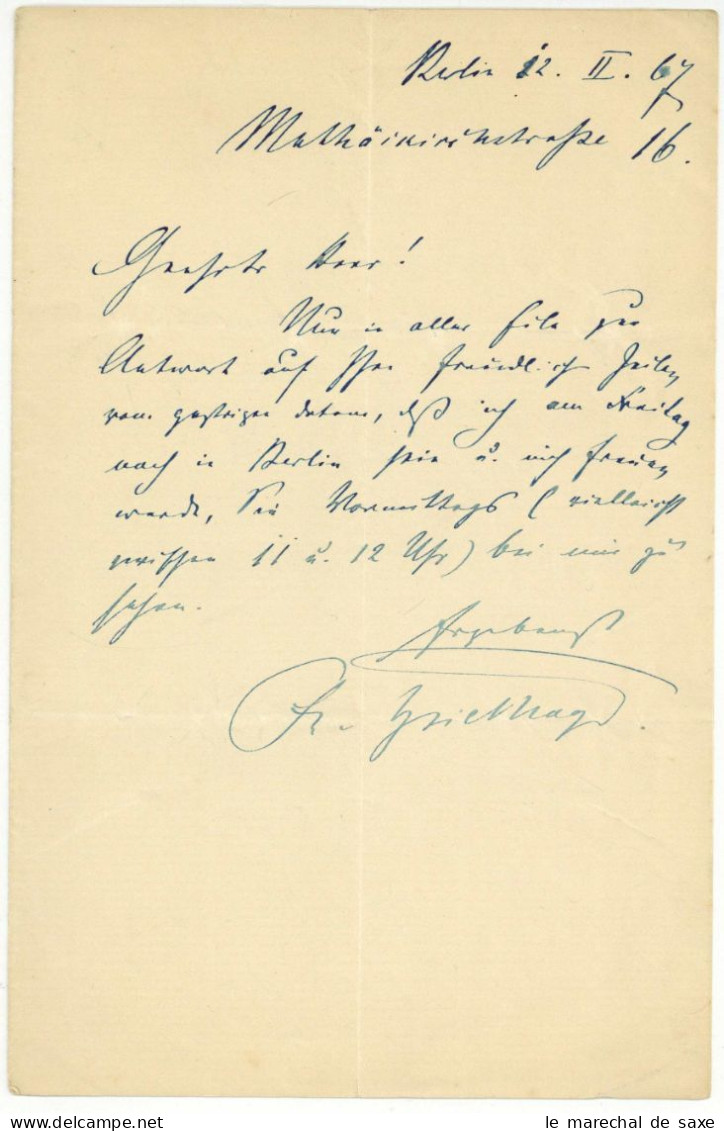 Berlin 12. II. 67
Matthäikirchstraße 16.
Geehrter Herr!
Nur in aller Eile zur
Antwort auf Ihre freundlichen Zeilen
vom gestrigen Datum, daß ich am Freitag
noch in Berlin sein u. mich freuen
werde, Sie Vormittags (vielleicht
zwischen 11 u. 12 Uhr) bei mir zu
sehen.
Ergebenst
Fr. Spielhagen.
le marechal de saxe